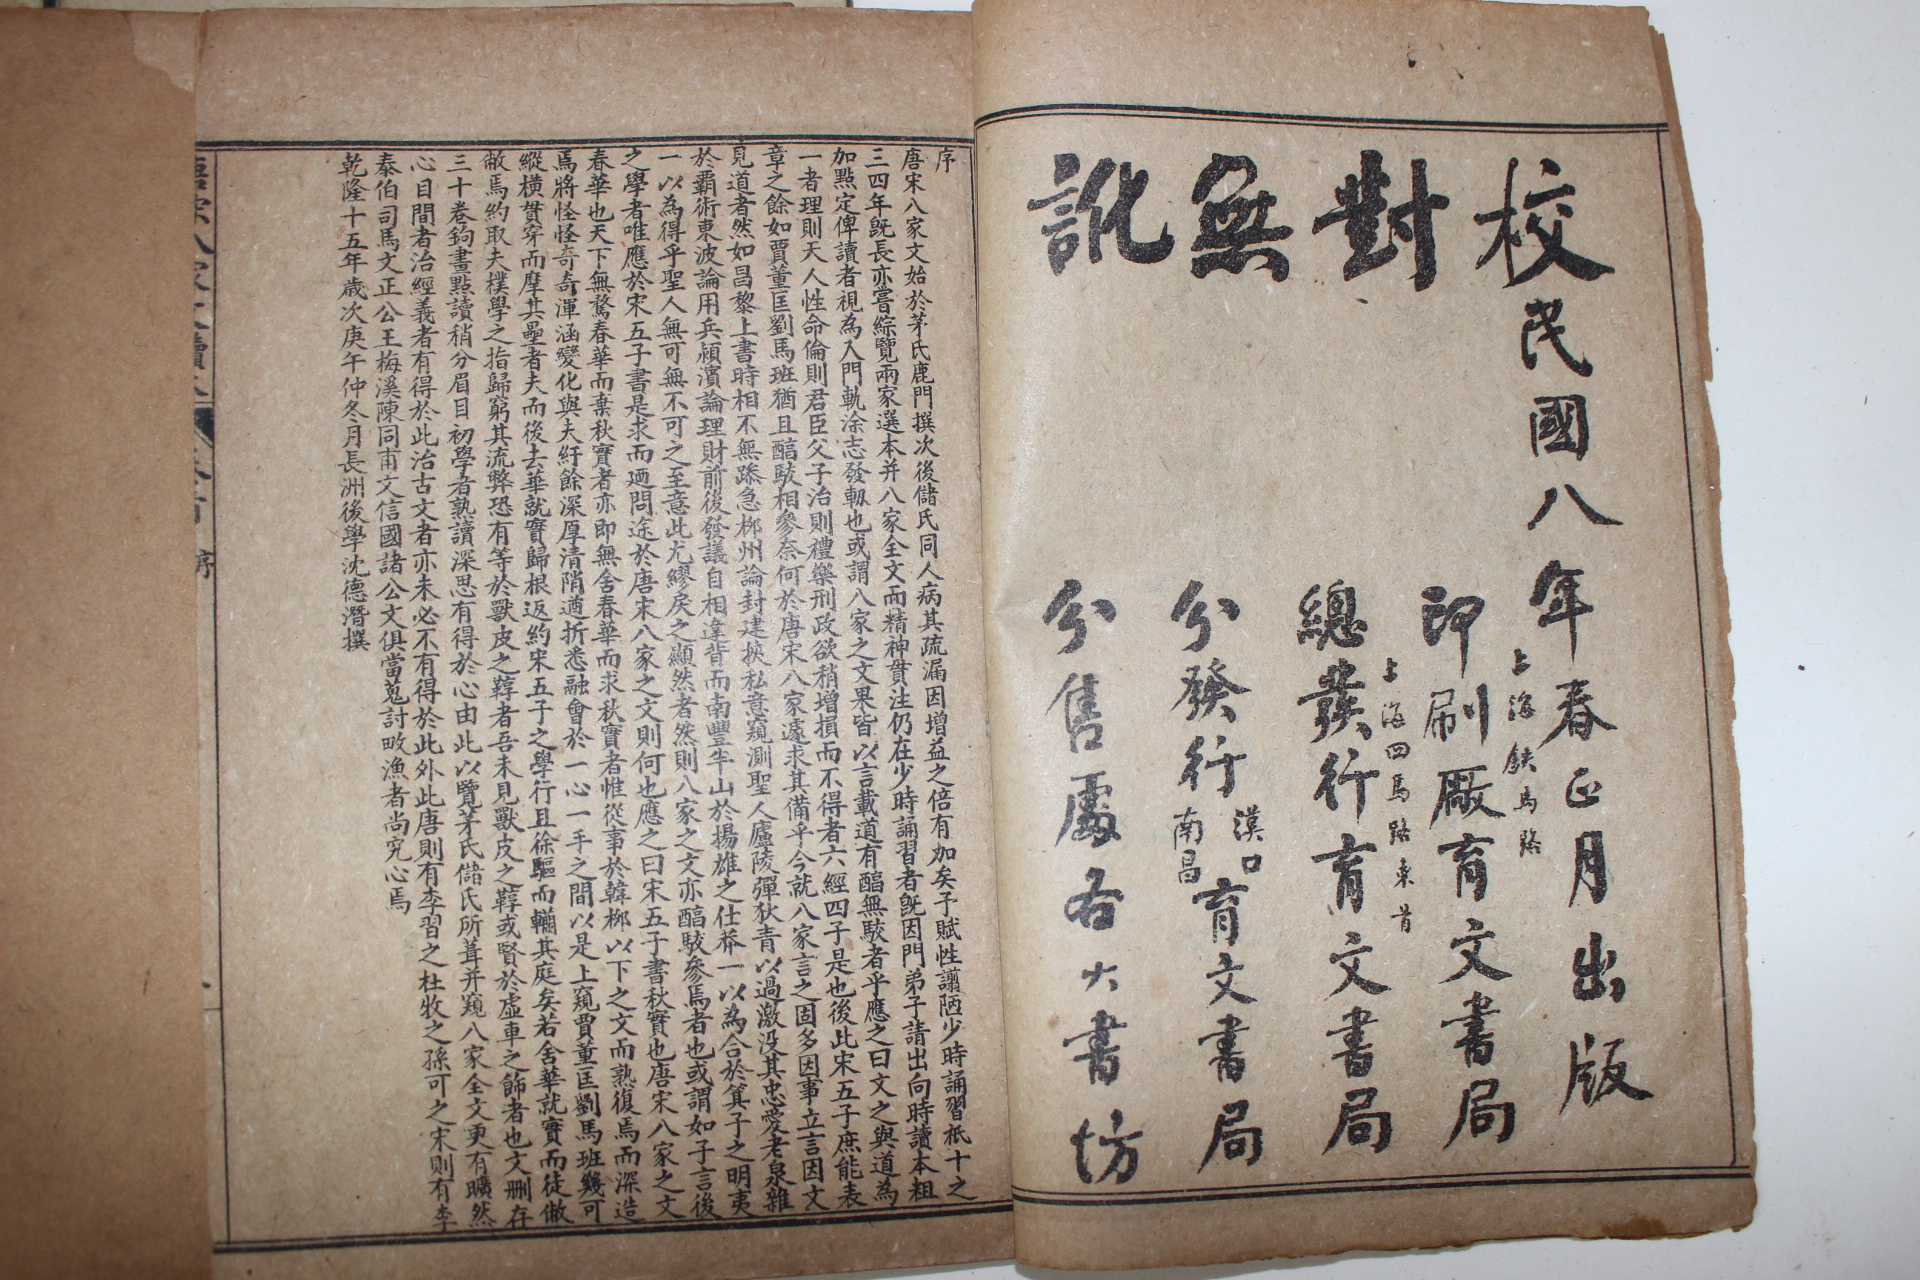 校對無訛
民國八年春正月出版
上海鉄馬路
印刷廠育文書局
上海四馬路東首
總發行育文書局
分發行漢口南昌育文書局
分售處各大書坊
序
唐宋八家文始於茅氏鹿門撰次後儲氏同人病其疏漏因增益之倍有加矣予賦性謭陋少時誦習祇十之
三四年旣長亦嘗綜覽兩家選本并八家全文而精神貫注仍在少時誦習者旣因門弟子請出向時讀本粗
加點定俾讀者視為入門軌涂志發軔也或謂八家之文果皆以言載道有醇無駁者乎應之曰文之與道為
一者理則天人性命倫則君臣父子治則禮樂刑政欲稍增損而不得者六經四子是也後此宋五子庶能表
章之餘如賈董匡劉馬班猶且醇駁相參奈何於唐宋八家遽求其備乎今就八家言之固多因事立言因文
見道者然如昌黎上書時相不無躁急柳州論封建挾私意窺測聖人廬陵彈狄青以過激没其忠愛老泉雜
於霸術東波論用兵潁濱論理財前後發議自相違背而南豐半山於揚雄之仕莽一以為合於箕子之明夷
一以為得乎聖人無可無不可之至意此尤繆戾之顯然者然則八家之文亦醇駁參焉者也或謂如子言後
之學者唯應於宋五子書是求而廼問途於唐宋八家之文則何也應之曰宋五子書秋實也唐宋八家之文
春華也天下無騖春華而棄秋實者亦即無舍春華而求秋實者惟從事於韓柳以下之文而熟復焉而深造
焉將怪怪奇奇渾涵變化與夫紆餘深厚清陗遒折悉融會於一心一手之間以是上窺賈董匡劉馬班幾可
縱橫貫穿而摩其壘者夫而後去華就實歸根返約宋五子之學行且徐驅而轥其庭矣若舍華就實而徒敝
敝焉約取夫樸學之指歸窮其流弊恐有等於獸皮之鞟者吾未見獸皮之鞟或賢於虛車之飾者也文删存
三十卷鉤畫點讀稍分眉目初學者熟讀深思有得於心由此以覽茅氏儲氏所葺并窺八家全文更有曠然
心目間者治經義者有得於此治古文者亦未必不有得於此外此唐則有李習之杜牧之孫可之宋則有李
泰伯司馬文正公王梅溪陳同甫文信國諸公文俱當蒐討畋漁者尚究心焉
乾隆十五年歲次庚午仲冬月長洲後學沈德潛撰
序